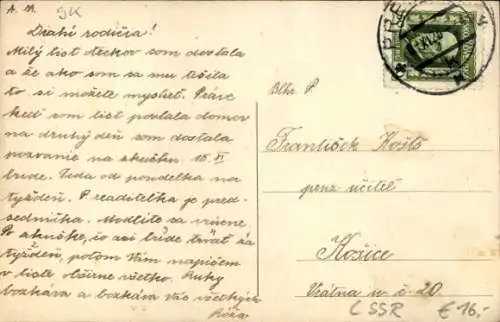 A. M.
SK
Drahí rodičia!
Milý list oteckov som dostala
a že ako som sa mu tešila
to si môžete myslieť. Práve
keď som list poslala domov
na druhý deň som dostala
pozvanie na skúšku. 15. XI
bude. Teda od pondelka na
týždeň. P. readitelka je pred-
sedníčka. Modlite sa vrúcne.
Po skúške, čo asi bude trvať za
týždeň, potom Vám napíšem
v liste obšírne všetko. Ruky
bozkáva a bozkáva Vás všetkých
Róza
Blhr. P
František Košto
penz. učiteľ
Košice
Vrátna u. č. 20.
ČSSR €16,-